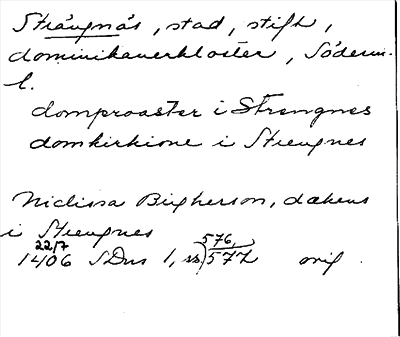 Strängnäs, stad, stift,
dominikanerkloster, Söderm.
l.
domproaster i Strengnes
domkirkione i Strengnes
Niclissa Birgherson, dækens
i Strengnes
22/7 576,
1406 SDns 1, ss 577 orig.